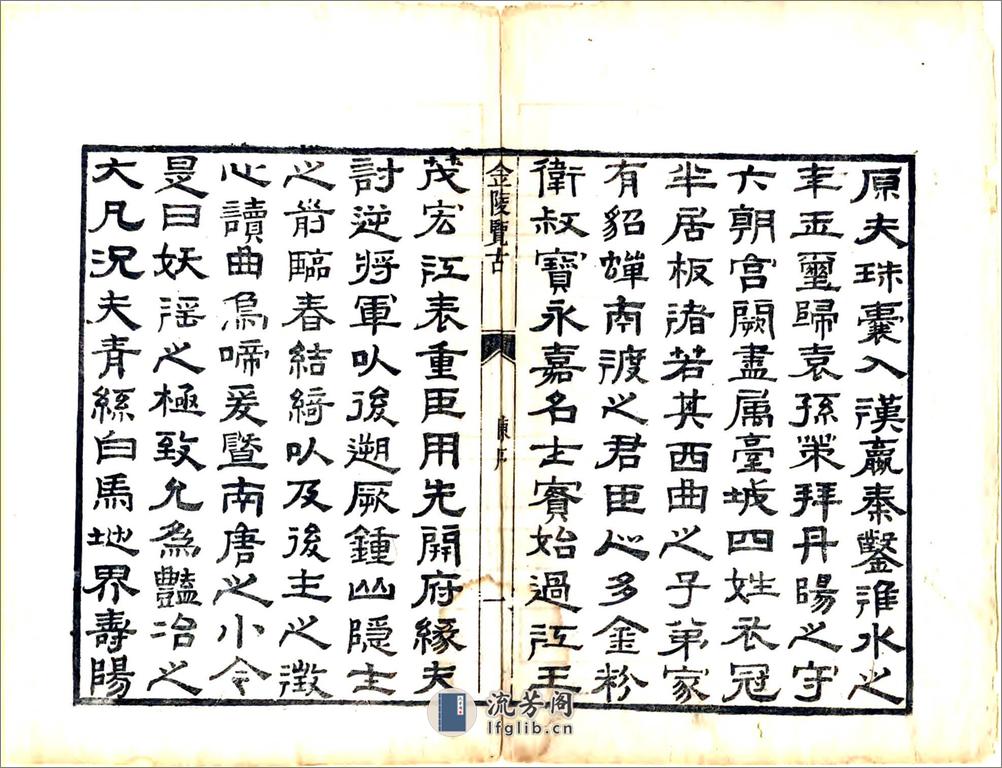 原夫珠囊入漢嬴秦鑿淮水之
年玉璽歸袁孫策拜丹陽之守
六朝宮闕盡屬臺城四姓衣冠
半居板渚若其西曲之子弟家
有貂蟬南渡之君臣心多金粉
衛叔寶永嘉名士賓始過江王
金陵覽古
陳序
一
茂宏江表重臣用先開府緣夫
討逆將軍以後遡厥鍾山隱士
之前臨春結綺以及後主之徵
心讀曲烏啼爰暨南唐之小令
旻曰妖淫之極致允為豔冶之
大凡況夫青絲白馬地界壽陽
流芳阁
lfglib.cn